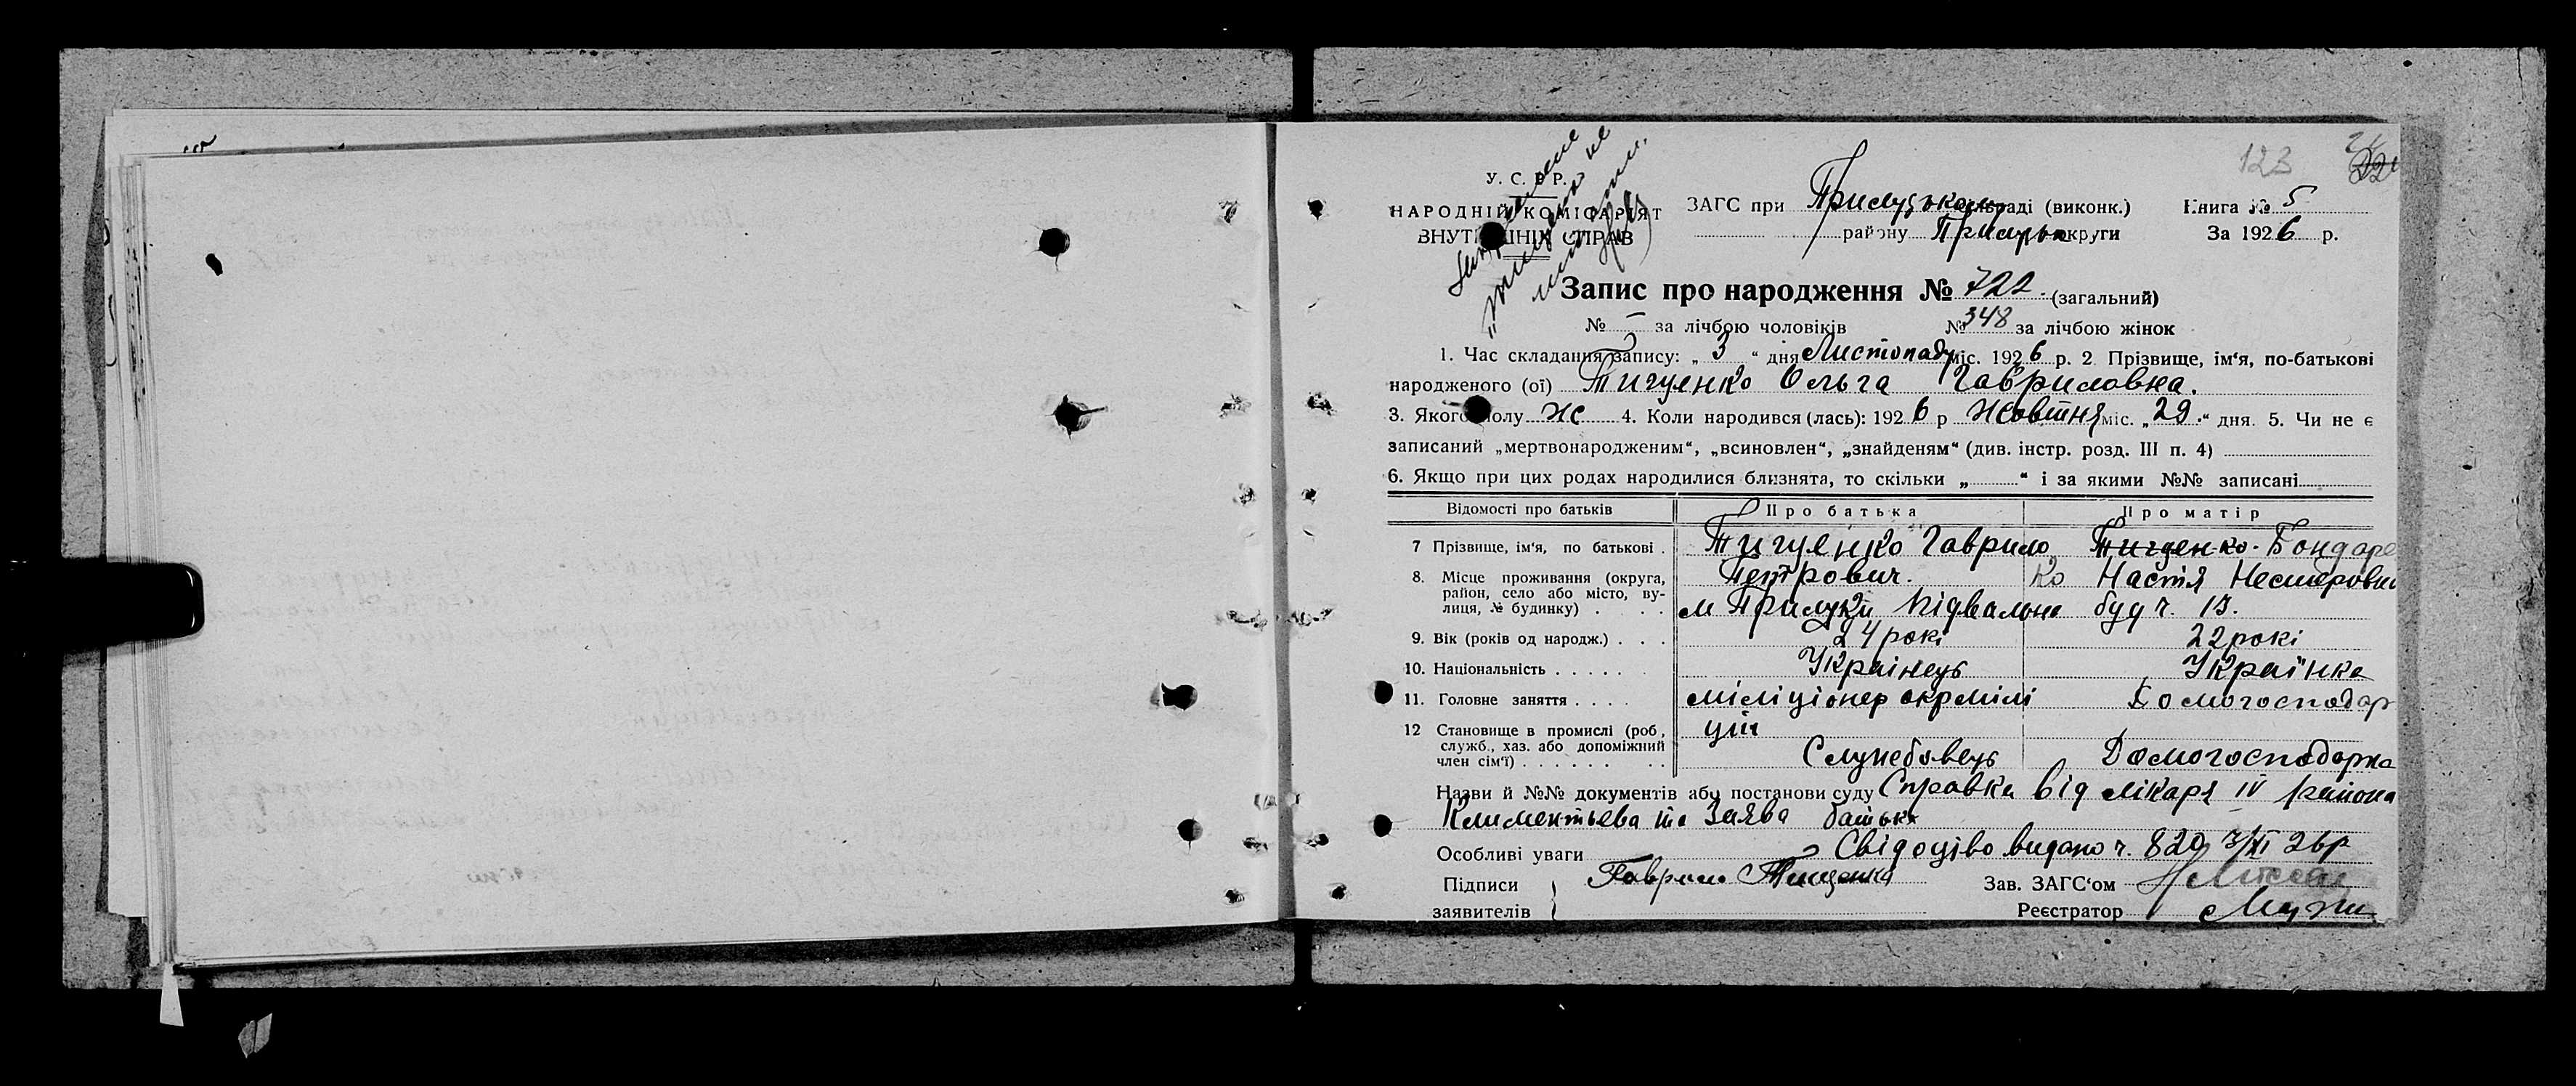 123
У. С. Р Р.
НАРОДНІЙ КОМІСАРІЯТ
ВНУТРІШНІХ СПРАВ
ЗАГС при Прилуцькому сільраді (виконк.) Книга № 5
району Прилуцьк округи За 1926 р.
Запис про народження № 722. (загальний)
№ — за лічбою чоловіків № 348 за лічбою жінок
1. Час складання запису: „ 3 “ дня Листопаду міс. 1926 р. 2. Прізвище, ім‘я, по-батькові
народженого (ої) Тищенко Ольга Гавриловна.
3. Якого полу ж 4. Коли народився (лась): 1926 р Жовтня міс. „ 29 “ дня. 5. Чи не є
записаний „мертвонародженим“, „всиновлен“, „знайденям“ (див. інстр. розд. III п. 4)
6. Якщо при цих родах народилися близнята, то скільки „ “ і за якими №№ записані
Відомості про батьків Про батька Про матір
7 Прізвище, ім‘я, по батькові . Тищенко Гаврило Тищенко. Бондаре
Петрович. ко Настя Нестеровна
8. Місце проживання (округа, район, село або місто, вулиця, № будинку) . . . . м Прилуки Підвальна буд ч. 13.
9. Вік (років од народж.) . . . 24 рокі 22 рокі
10. Національність . . . . . . Українець Українка
11. Головне заняття . . . . міліціонер окрмілі Домогосподар
ції
12 Становище в промислі (роб, служб., хаз. або допоміжний член сім‘ї) . . . . . . . . Службовець Домогосподарка
Назви й №№ документів або постанови суду Справка від лікаря IV района
Климентьева та Заява батька
Особливі уваги Свідоцтво видано ч. 820 3/XI 26р
Підписи заявителів Гаврило Тищенко
Зав. ЗАГС‘ом
Реєстратор